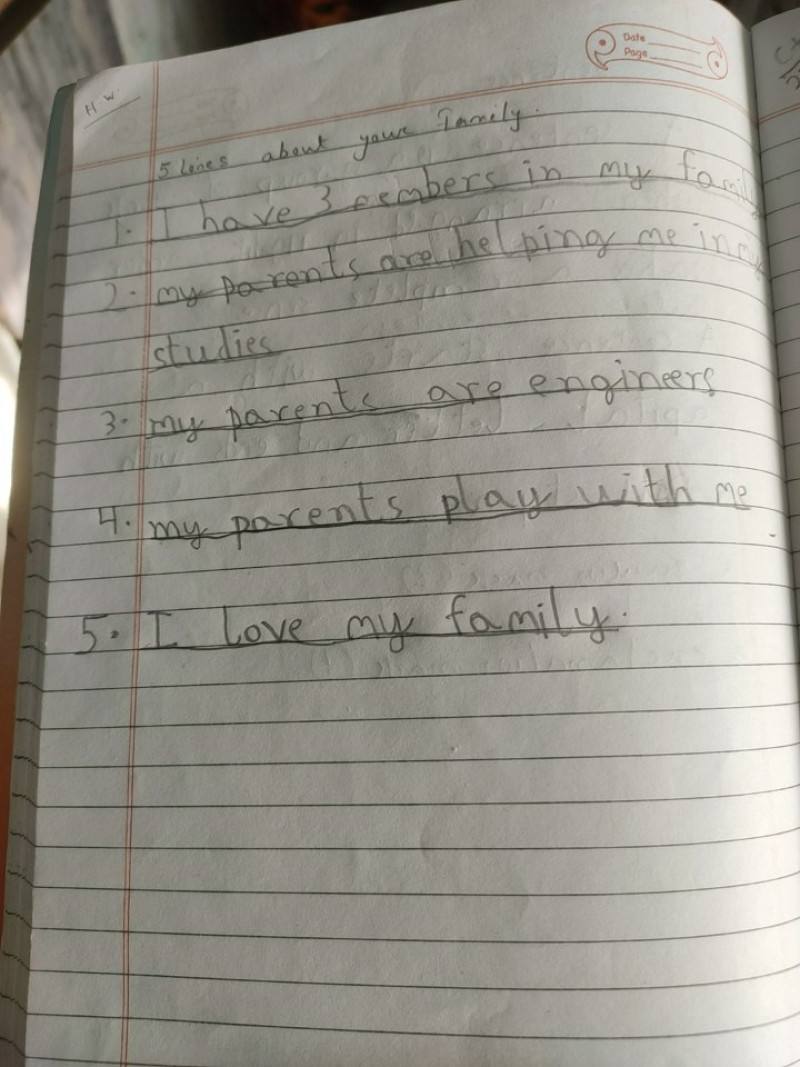 Date
Page
H.W.
5 lines about your Family.
1. I have 3 members in my family
2. my parents are helping me in my
studies
3. my parents are engineers
4. my parents play with me
5. I love my family.